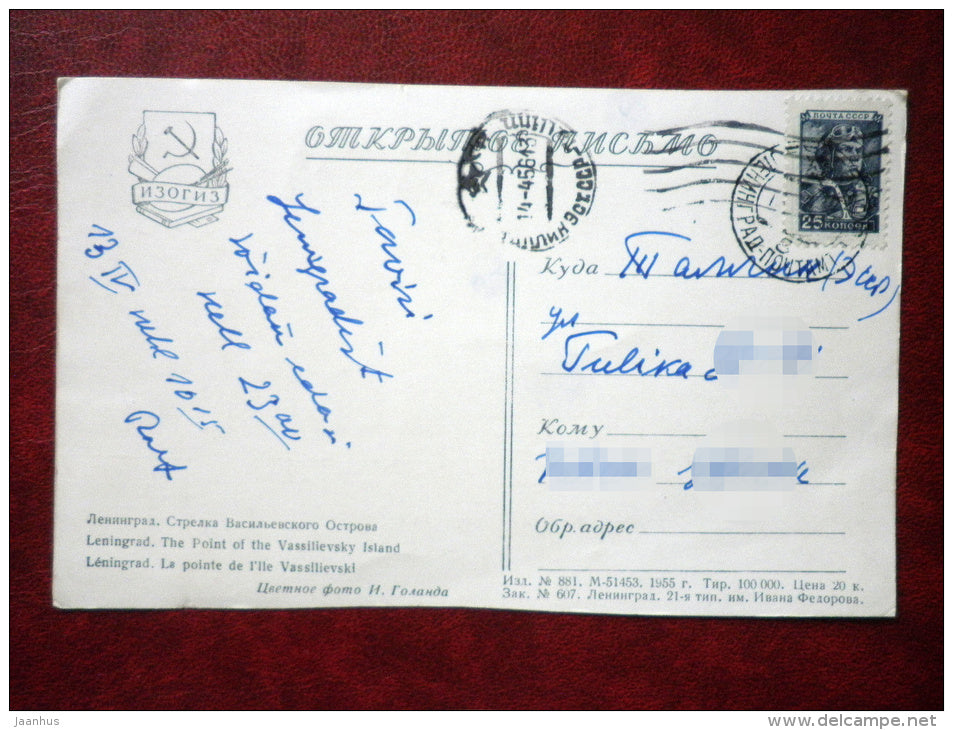 ОТКРЫТОЕ ПИСЬМО
ИЗОГИЗ
ПОЧТА СССР
25 КОПЕЕК
14-4 56 17
ЛЕНИНГРАД-ПОЧТАМТ
Tervisi
Leningradist
sõidan edasi
kell 23 00
13 IV kell 10 15
Куда Таллин (ЭССР)
ул
Tulika
Кому
Обр. адрес
Ленинград. Стрелка Васильевского Острова
Leningrad. The Point of the Vassilievsky Island
Léningrad. La pointe de l'Ile Vassilievski
Цветное фото И. Голанда
Изд. № 881. М-51453. 1955 г. Тир. 100 000. Цена 20 к.
Зак. № 607. Ленинград. 21-я тип. им. Ивана Федорова.
Jaanhus
www.delcampe.net